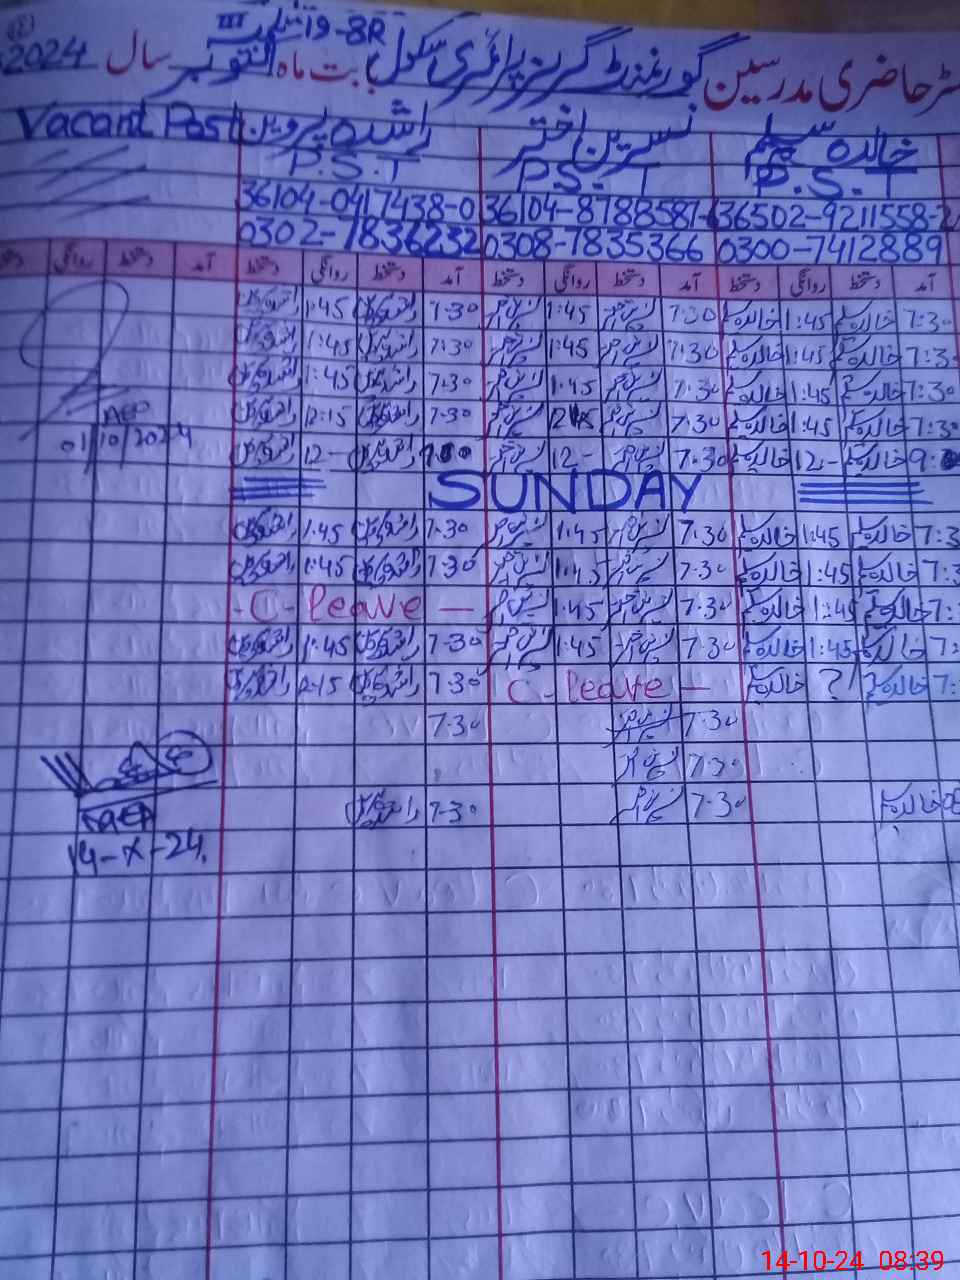 رجسٹر حاضری مدرسین گورنمنٹ گرلز پرائمری سکول 19-8R بابت ماہ اکتوبر سال 2024
خالدہ سلیم نسرین اختر راشدہ پروین Vacant Post
P.S.T P.S.T P.S.T
36502-9211558-2 36104-8788587- 36104-0417438-0
0300-7412889 0308-7835366 0302-7836232
آمد دستخط روانگی دستخط آمد دستخط روانگی دستخط آمد دستخط روانگی دستخط آمد دستخط روانگی
7:30 خالدہ سلیم 1:45 خالدہ سلیم 7:30 نسرین اختر 1:45 نسرین اختر 7:30 راشدہ پروین 1:45 راشدہ پروین
7:30 خالدہ سلیم 1:45 خالدہ سلیم 7:30 نسرین اختر 1:45 نسرین اختر 7:30 راشدہ پروین 1:45 راشدہ پروین
7:30 خالدہ سلیم 1:45 خالدہ سلیم 7:30 نسرین اختر 1:45 نسرین اختر 7:30 راشدہ پروین 1:45 راشدہ پروین
7:30 خالدہ سلیم 1:45 خالدہ سلیم 7:30 نسرین اختر نسرین اختر 7:30 راشدہ پروین 12:15 راشدہ پروین
خالدہ سلیم 12- خالدہ سلیم 7:30 نسرین اختر 12- نسرین اختر راشدہ پروین 12- راشدہ پروین
AEO
01/10/2024
SUNDAY
7:3 خالدہ سلیم 1:45 خالدہ سلیم 7:30 نسرین اختر 1:45 نسرین اختر 7:30 راشدہ پروین 1:45 راشدہ پروین
7:3 خالدہ سلیم 1:45 خالدہ سلیم 7:30 نسرین اختر 1:45 نسرین اختر 7:30 راشدہ پروین 1:45 راشدہ پروین
7: خالدہ سلیم 1:45 خالدہ سلیم 7:30 نسرین اختر 1:45 نسرین اختر - C - leave -
7: خالدہ سلیم 1:45 خالدہ سلیم 7:30 نسرین اختر 1:45 نسرین اختر 7:30 راشدہ پروین 1:45 راشدہ پروین
7: خالدہ سلیم ? خالدہ سلیم C - leave - 7:30 راشدہ پروین 12:15 راشدہ پروین
7:30 نسرین اختر 7:30
7:30 نسرین اختر
08 خالدہ سلیم 7:30 نسرین اختر 7:30 راشدہ پروین
14-X-24.
14-10-24 08:39